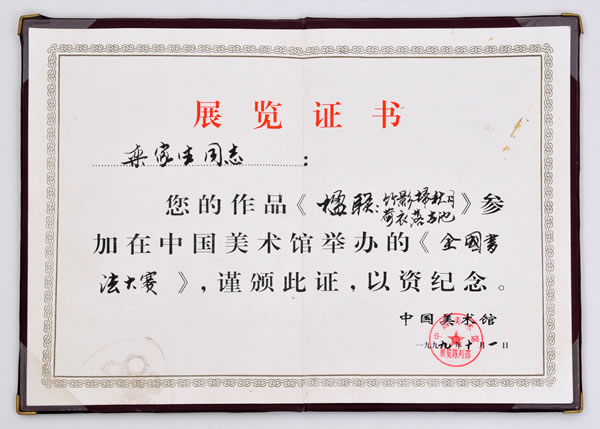 展览证书
栾家生同志：
您的作品《楹联：竹影扫秋月
荷衣落方池》参
加在中国美术馆举办的《全国书
法大赛》，谨颁此证，以资纪念。
中国美术馆
一九九九年十月一日
中国美术馆
展览陈列部